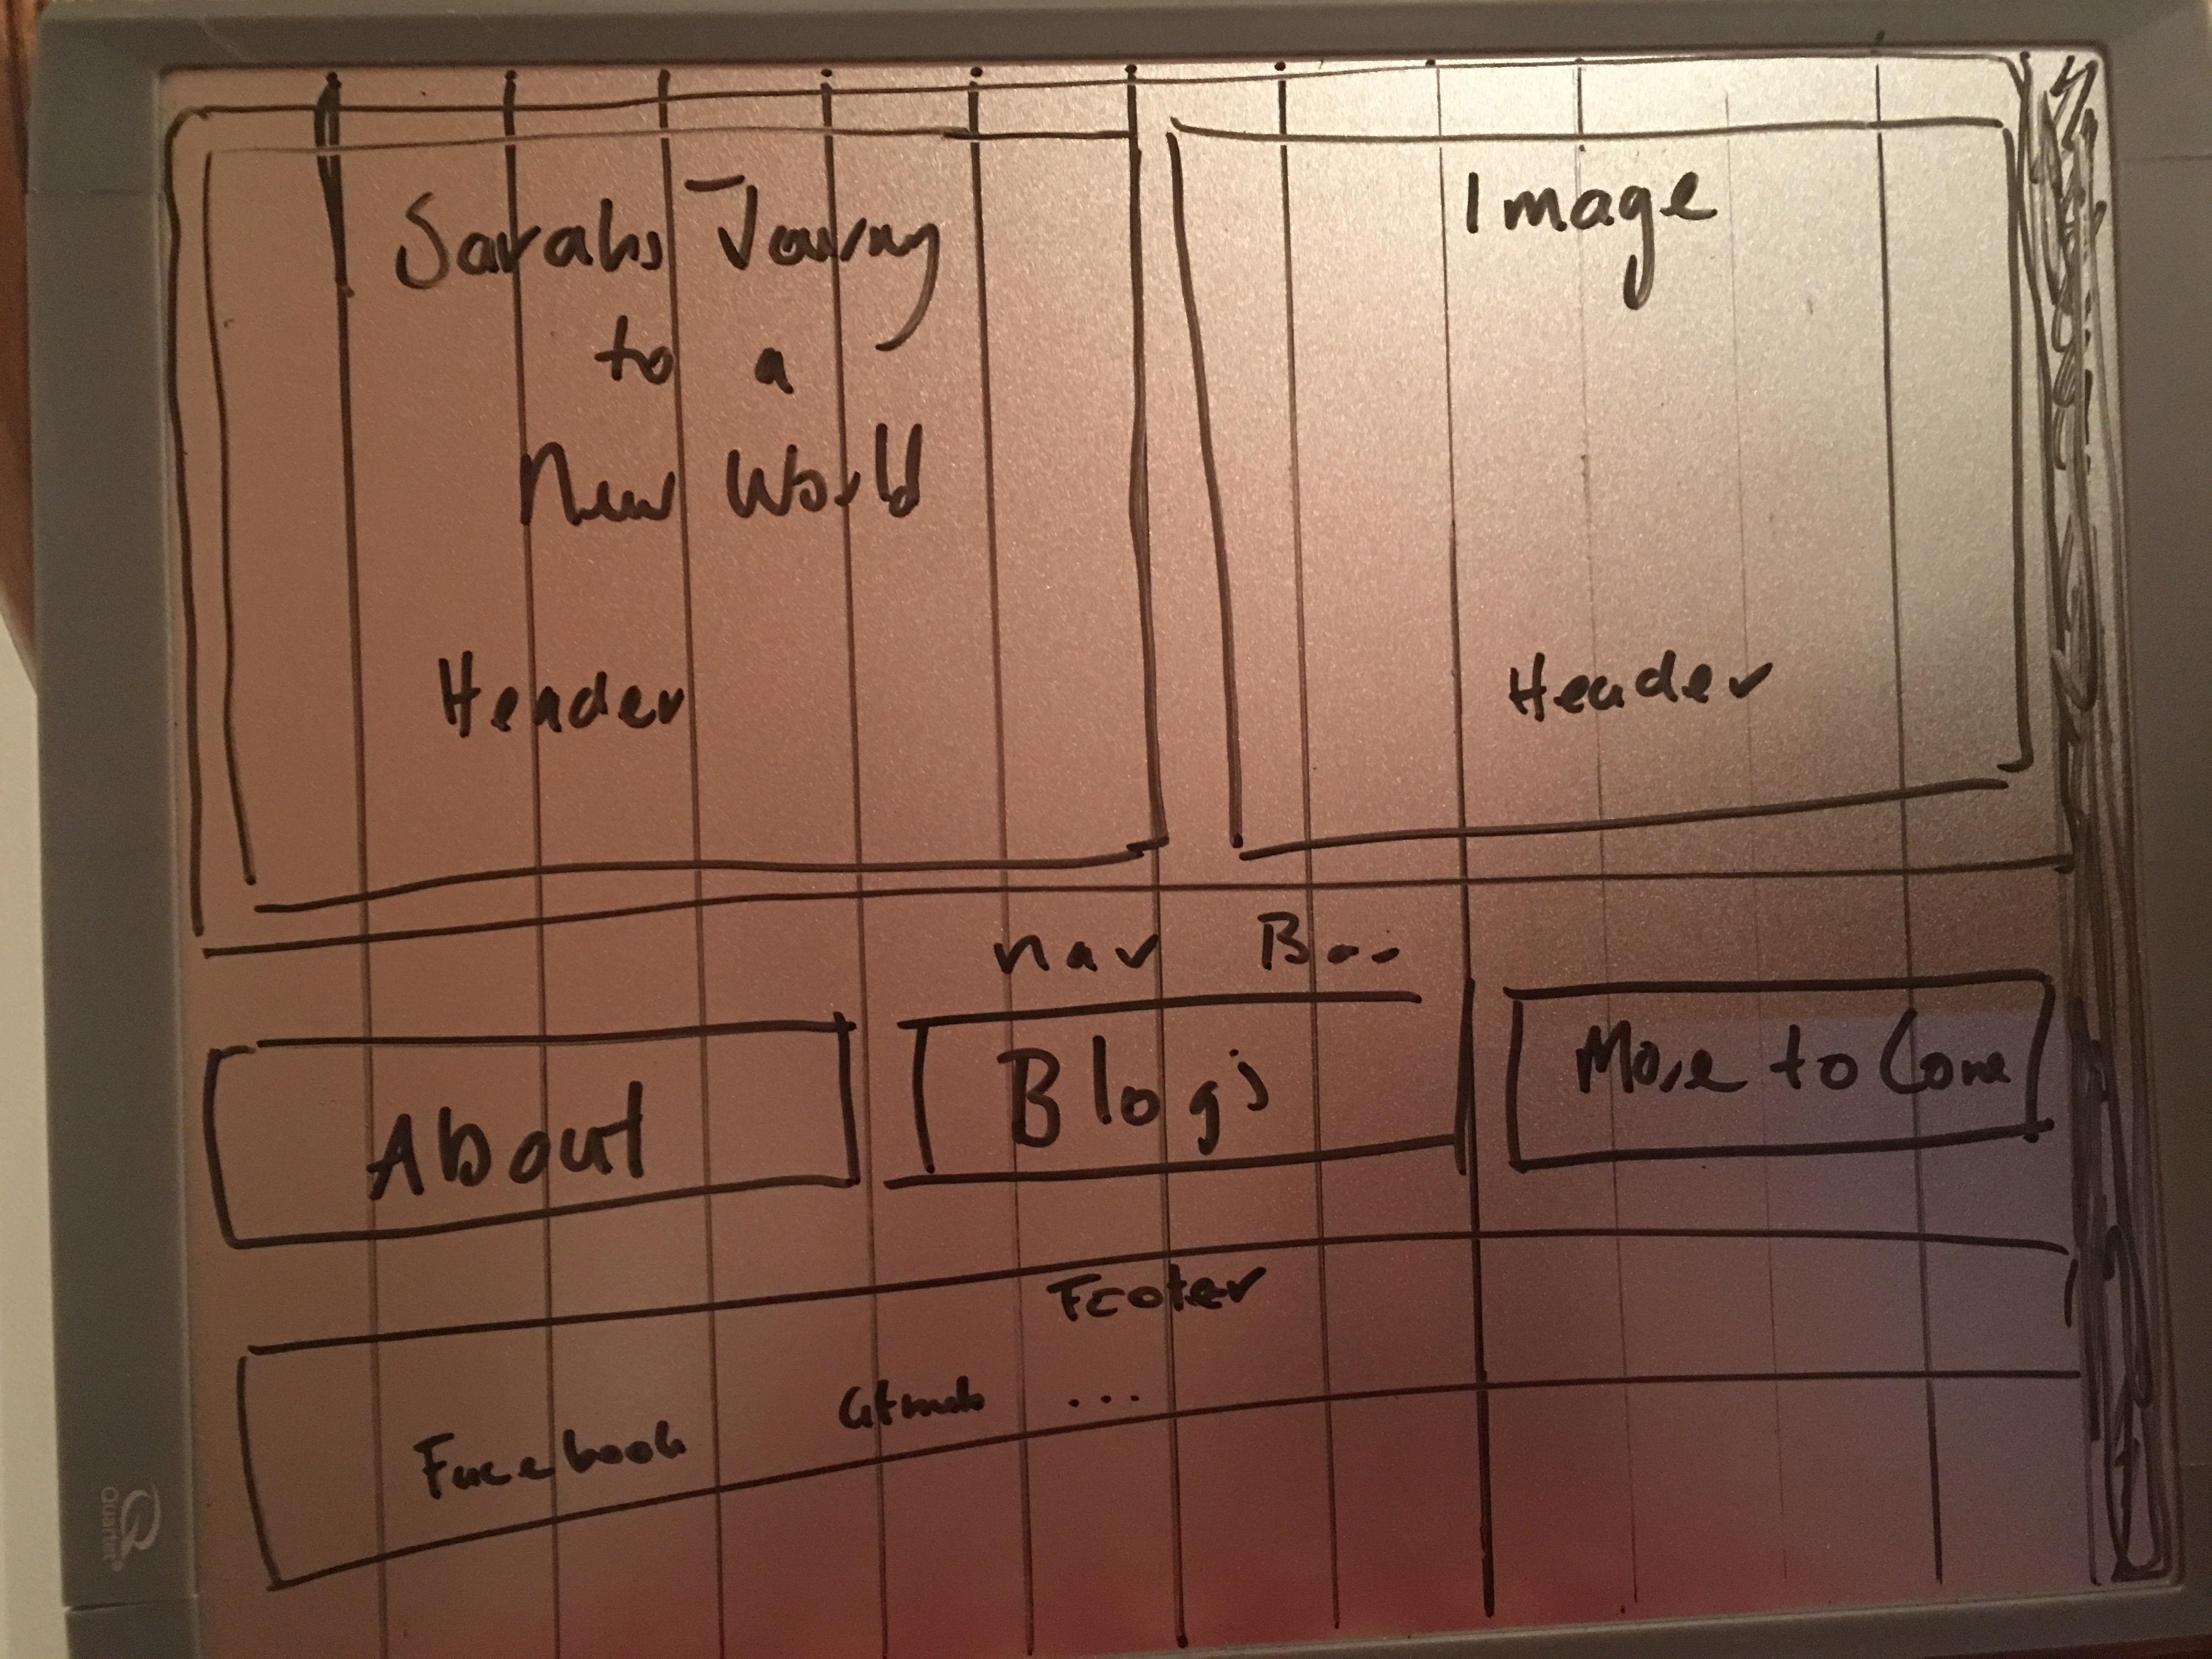 Sarahs Journy
to a
New World
Header
Image
Header
nav B
About
Blogs
More to Come
Footer
Facebook
...
Quartet